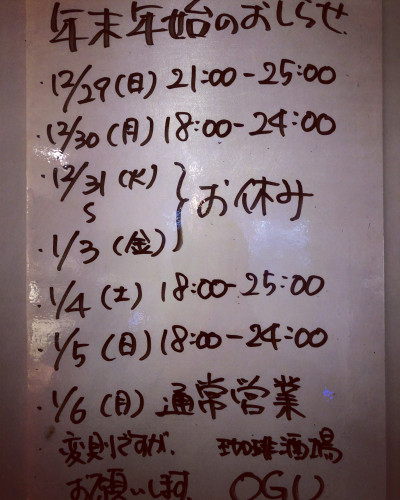 年末年始のおしらせ
・12/29(日) 21:00-25:00
・12/30(月) 18:00-24:00
・12/31(火)
S
お休み
・1/3(金)
・1/4(土) 18:00-25:00
・1/5(日) 18:00-24:00
・1/6(月) 通常営業
変則ですが、 珈琲酒場
お願いします OGU